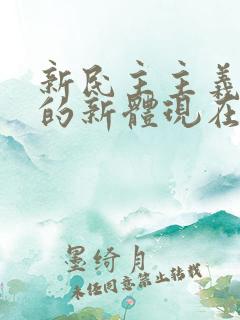 新民主主義
的新體現在
墨绮月
未经同意禁止转载